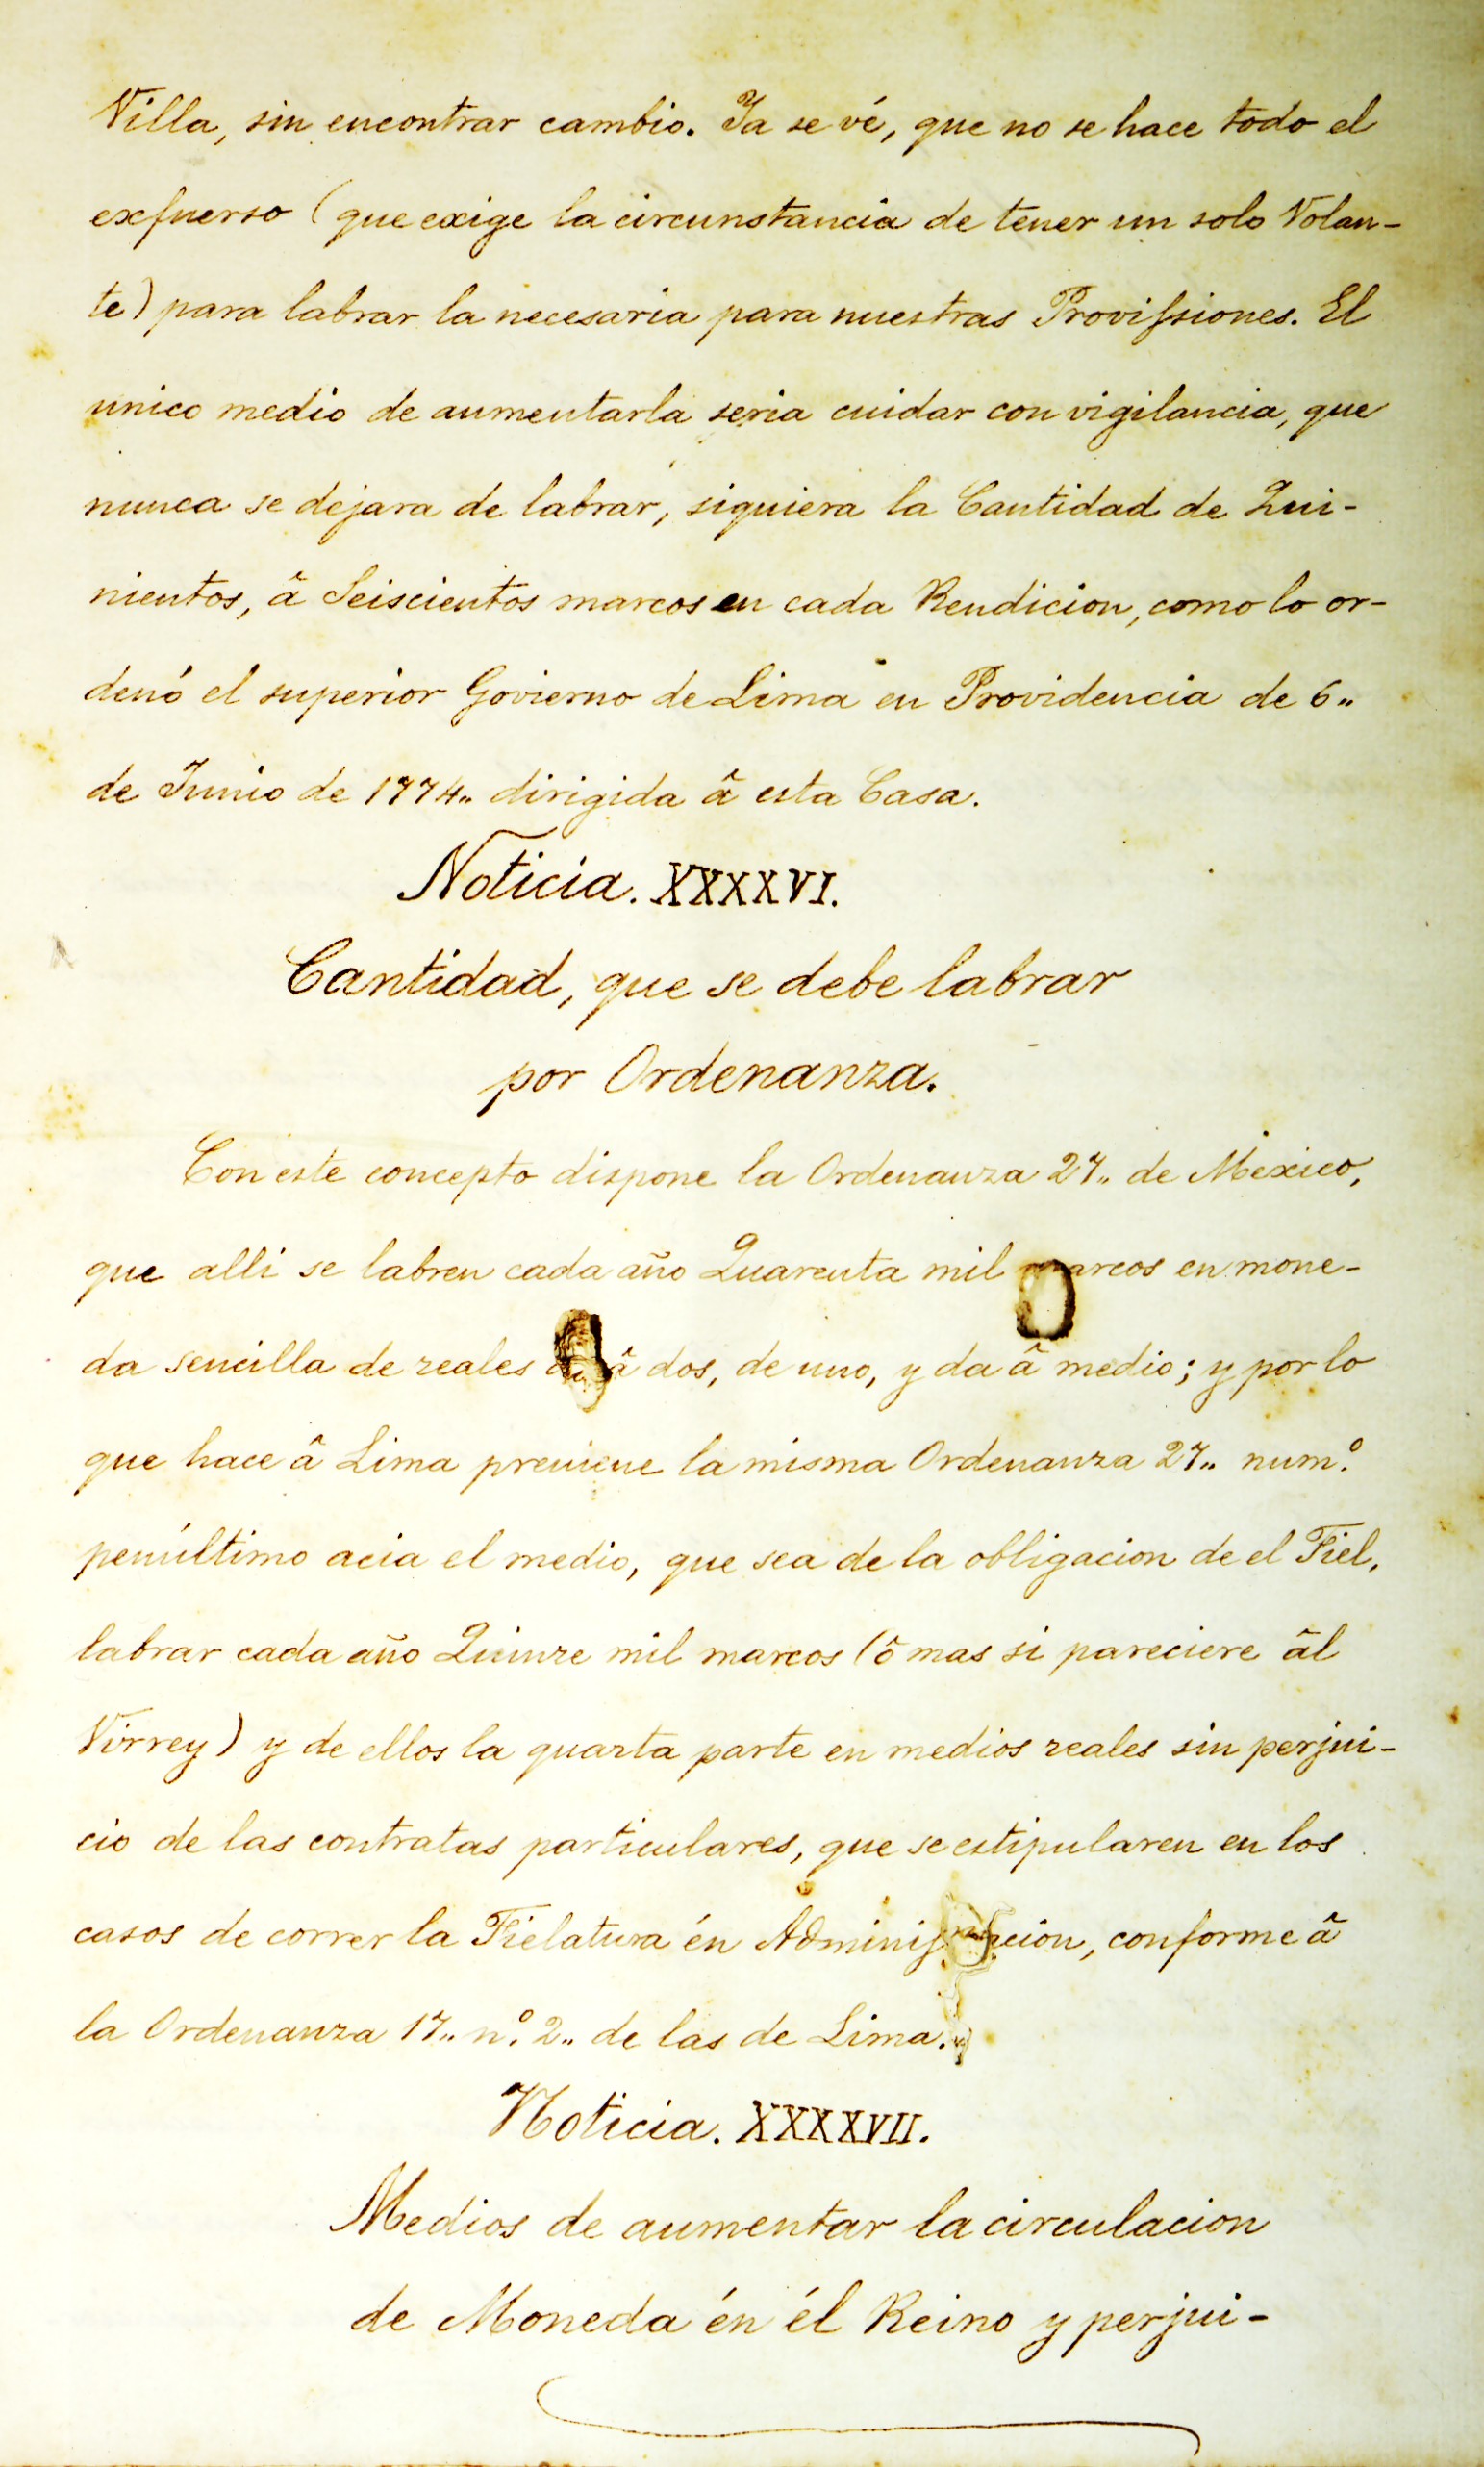 Villa, sin encontrar cambio. Ya se vé, que no se hace todo el
exfuerso (que exige la circunstancia de tener un solo Volan-
te) para labrar la necesaria para nuestras Provifsiones. El
unico medio de aumentarla seria cuidar con vigilancia, que
nunca se dejara de labrar, siquiera la Cantidad de Qui-
nientos, â Seiscientos marcos en cada Rendicion, como lo or-
denó el superior Govierno de Lima en Providencia de 6„
de Junio de 1774„ dirigida â esta Casa.
Noticia. XXXXVI.
Cantidad, que se debe labrar
por Ordenanza.
Con este concepto dispone la Ordenanza 27„ de Mexico,
que alli se labren cada año Quarenta mil marcos en mone-
da sencilla de reales de â dos, de uno, y da â medio; y por lo
que hace â Lima previene la misma Ordenanza 27„ num.º
penúltimo acia el medio, que sea de la obligacion de el Fiel,
labrar cada año Quinze mil marcos (ô mas si pareciere âl
Virrey) y de ellos la quarta parte en medios reales sin perjui-
cio de las contratas particulares, que se estipularen en los
casos de correr la Fielatura én Administracion, conforme â
la Ordenanza 17„ n.º 2„ de las de Lima.
Noticia. XXXXVII.
Medios de aumentar la circulacion
de Moneda én él Reino y perjui-